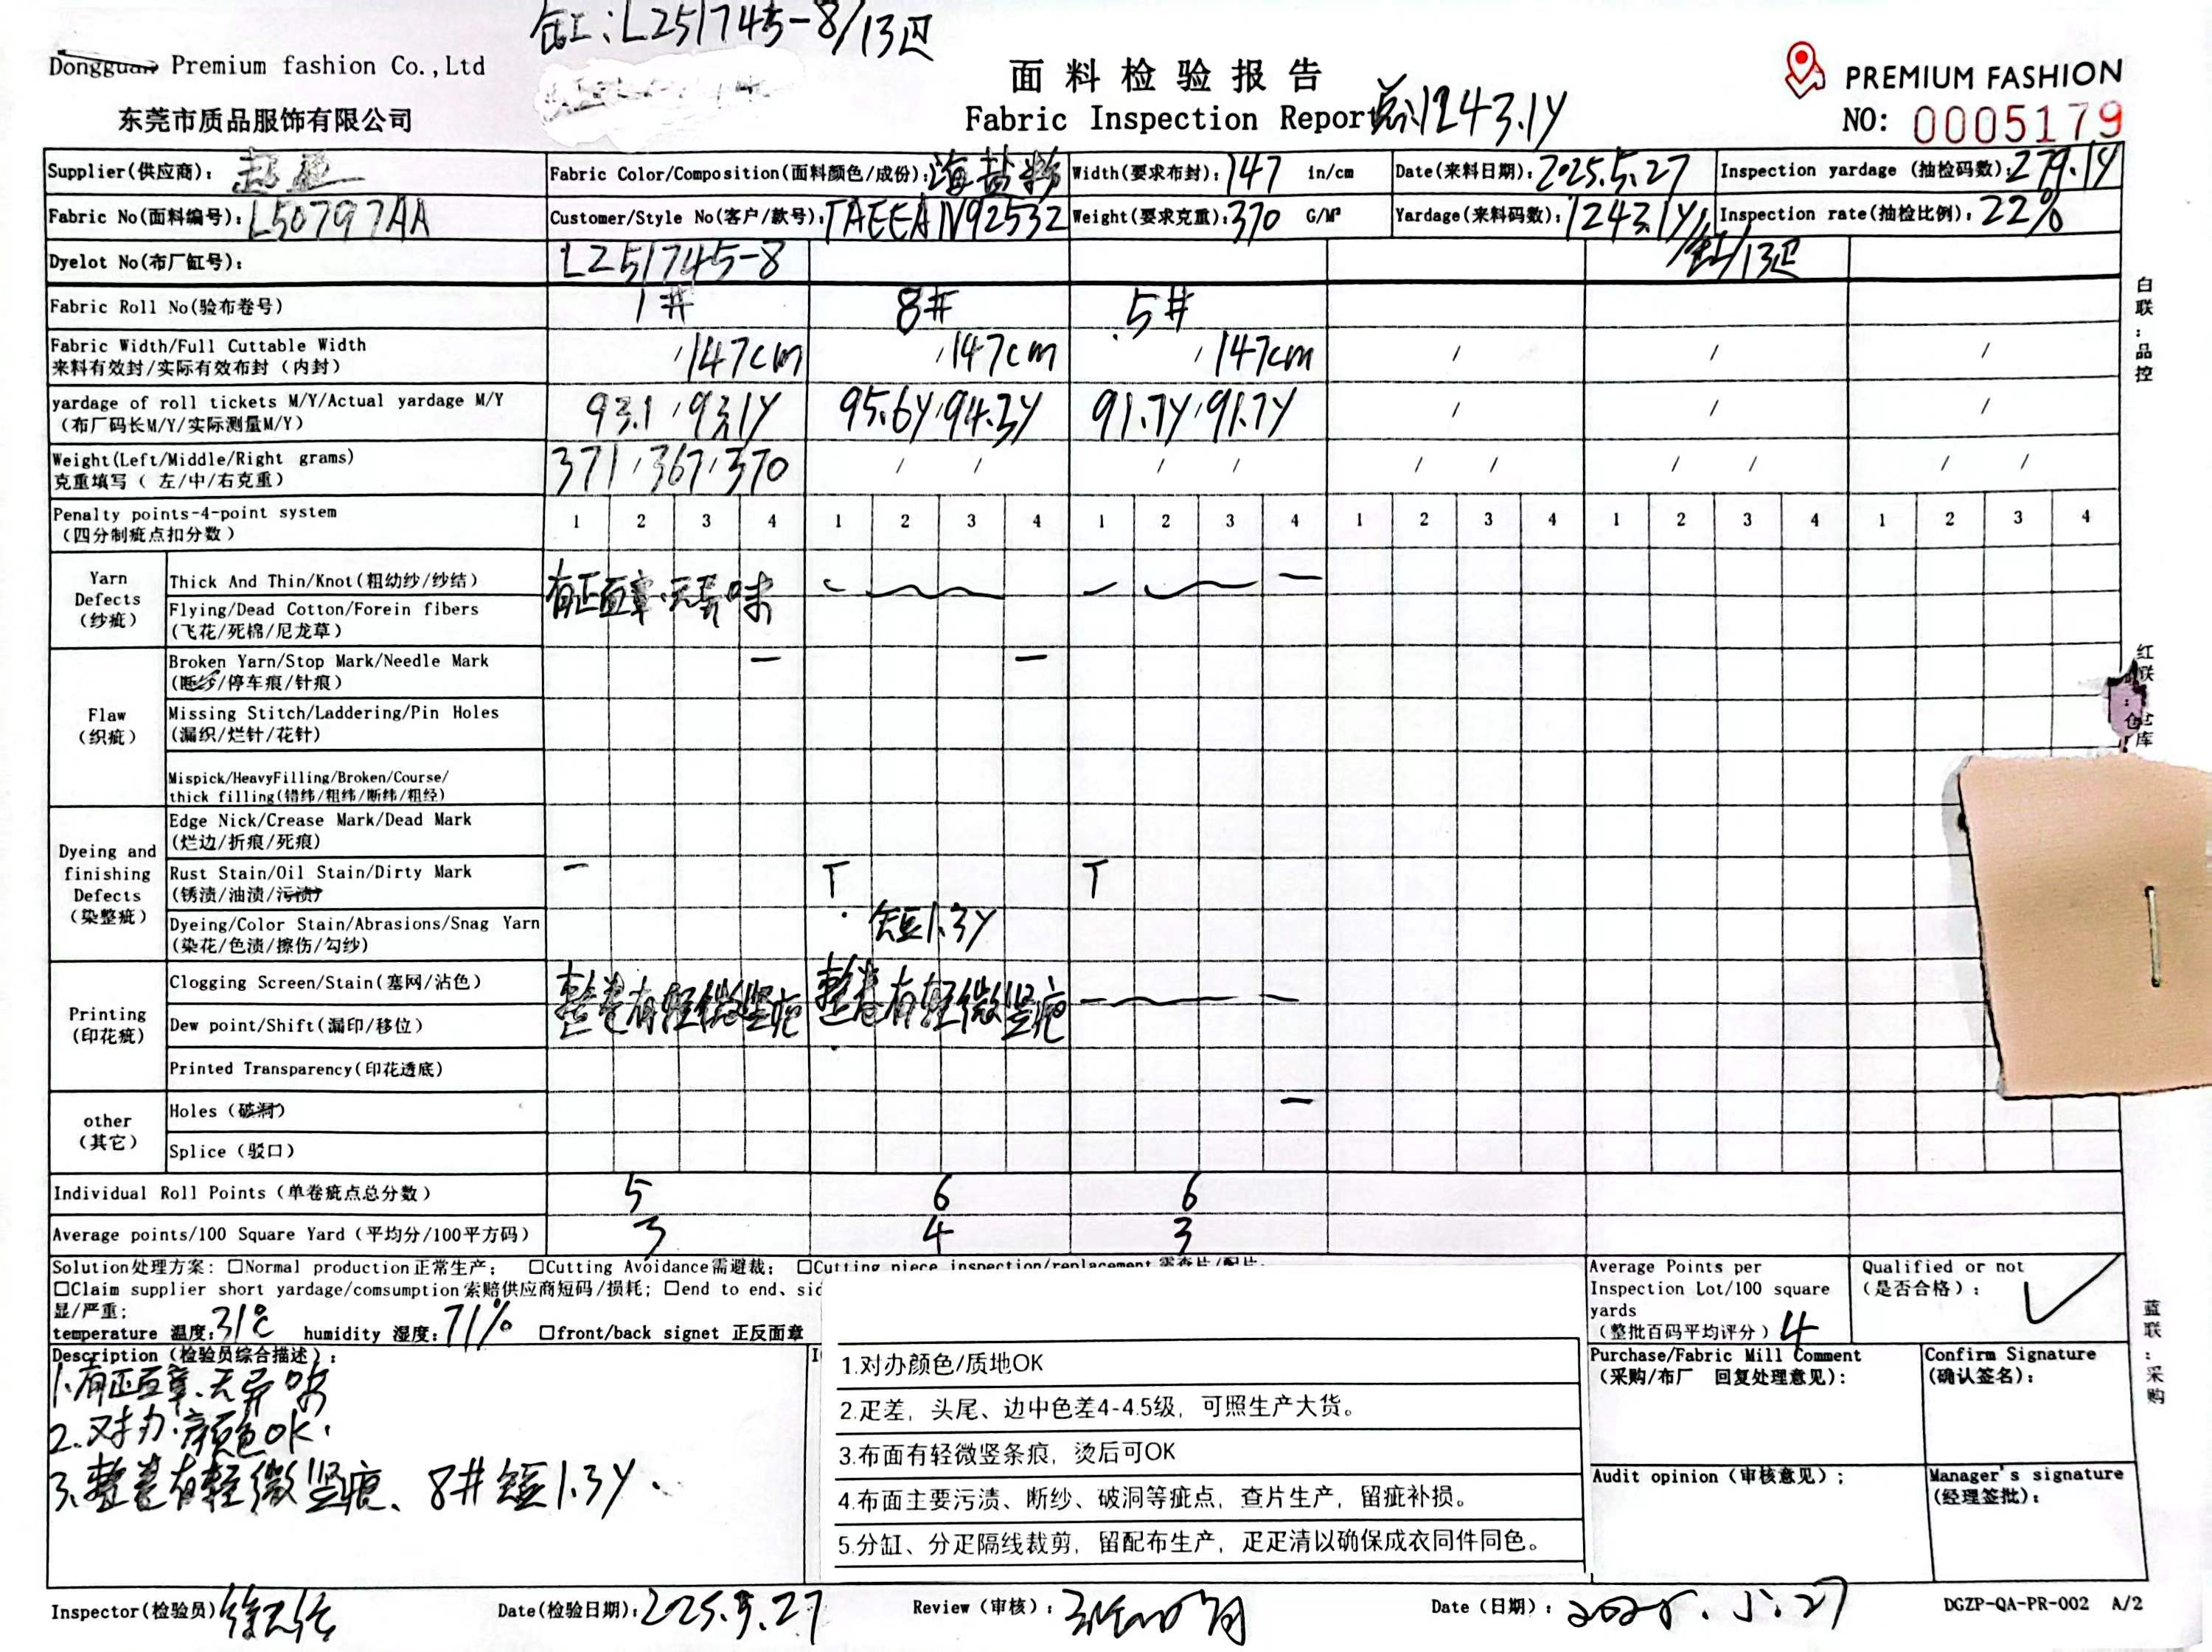 缸:L251745-8/13疋
Dongguan Premium fashion Co.,Ltd
东莞市质品服饰有限公司
面料检验报告
Fabric Inspection Report 总:1243.1Y
PREMIUM FASHION
NO: 0005179
Supplier(供应商): Fabric Color/Composition(面料颜色/成份): 海盐粉 Width(要求布封): 147 in/cm Date(来料日期): 2025.5.27 Inspection yardage (抽检码数): 279.1Y
Fabric No(面料编号): L50797AA Customer/Style No(客户/款号): TAEEAN92532 Weight(要求克重): 370 G/M² Yardage(来料码数): 1243.1Y/ Inspection rate(抽检比例): 22%
Dyelot No(布厂缸号): L251745-8 缸/13疋
Fabric Roll No(验布卷号) 1# 8# 5#
Fabric Width/Full Cuttable Width
来料有效封/实际有效布封(内封) /147cm /147cm /147cm / / /
yardage of roll tickets M/Y/Actual yardage M/Y
(布厂码长M/Y/实际测量M/Y) 93.1/93.1Y 95.6Y/94.3Y 91.7Y/91.7Y / / /
Weight(Left/Middle/Right grams)
克重填写( 左/中/右克重) 371/367/370 / / / / / / / / / /
Penalty points-4-point system
(四分制疵点扣分数) 1 2 3 4 1 2 3 4 1 2 3 4 1 2 3 4 1 2 3 4 1 2 3 4
Yarn Defects (纱疵)
Thick And Thin/Knot(粗幼纱/纱结)
有正面章.无异味
Flying/Dead Cotton/Forein fibers
(飞花/死棉/尼龙草)
Flaw (织疵)
Broken Yarn/Stop Mark/Needle Mark
(断纱/停车痕/针痕) 一 一
Missing Stitch/Laddering/Pin Holes
(漏织/烂针/花针)
Mispick/HeavyFilling/Broken/Course/
thick filling(错纬/粗纬/断纬/粗经)
Dyeing and finishing Defects (染整疵)
Edge Nick/Crease Mark/Dead Mark
(烂边/折痕/死痕)
Rust Stain/Oil Stain/Dirty Mark
(锈渍/油渍/污渍) 一 T T
Dyeing/Color Stain/Abrasions/Snag Yarn
(染花/色渍/擦伤/勾纱) 短1.3Y
Printing (印花疵)
Clogging Screen/Stain(塞网/沾色)
整卷有轻微竖痕 整卷有轻微竖痕
Dew point/Shift(漏印/移位)
Printed Transparency(印花透底)
other (其它)
Holes (破洞) 一
Splice (驳口)
Individual Roll Points (单卷疵点总分数) 5 6 6
Average points/100 Square Yard (平均分/100平方码) 3 4 3
Solution处理方案: □Normal production正常生产; □Cutting Avoidance需避裁; □Cutting piece inspection/replacement 需查片/配片.
□Claim supplier short yardage/comsumption索赔供应商短码/损耗; □end to end、sid
显/严重;
temperature 温度: 31℃ humidity 湿度: 71% □front/back signet 正反面章
Average Points per
Inspection Lot/100 square
yards
(整批百码平均评分) 4
Qualified or not
(是否合格): ✓
Description (检验员综合描述):
1.有正面章、无异味
2.对办.颜色OK.
3.整卷有轻微竖痕、8#短1.3Y.
1.对办颜色/质地OK
2.疋差，头尾、边中色差4-4.5级，可照生产大货。
3.布面有轻微竖条痕，烫后可OK
4.布面主要污渍、断纱、破洞等疵点，查片生产，留疵补损。
5.分缸、分疋隔线裁剪，留配布生产，疋疋清以确保成衣同件同色。
Purchase/Fabric Mill Comment
(采购/布厂 回复处理意见):
Confirm Signature
(确认签名):
Audit opinion (审核意见);
Manager's signature
(经理签批):
Inspector(检验员) Date(检验日期): 2025.5.27 Review (审核): Date (日期): 2025.5.27 DGZP-QA-PR-002 A/2
白联:品控
红联:仓库
蓝联:采购